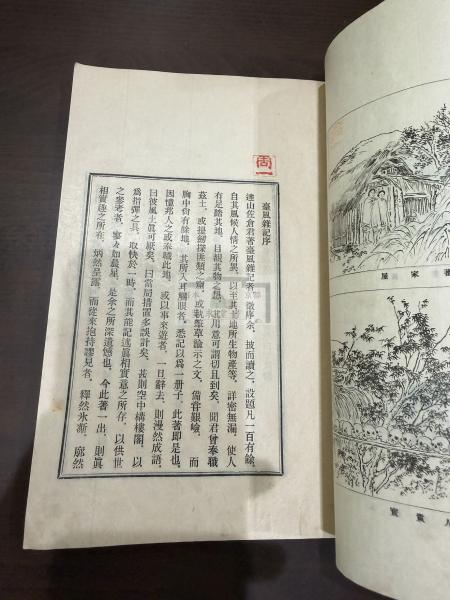 周一
臺風雜記序
達山佐倉君著臺風雜記者、徵序余、披而讀之、設題凡一百有餘、
自其風候人情之所異、以至其地所生物產等、詳密無漏、使人
有足踏其地、目覩其物之想、其用意可謂切且到矣、聞君曾奉職
茲土、或提劒探匪類之窟、或執槧草諭示之文、備甞艱嶮、而
胸中尙有餘地、其所入耳觸眼者、悉記以爲一册子、此著卽是也、
因憶邦人之或奉職此地、或以事來遊者、一旦辭去、則漫然成語、
曰彼風土眞可厭矣、曰當局措置多誤計矣、甚則空中構樓閣、以
爲指彈之具、取快於一時、而其能記述眞相實意之所存、以供世
之參考者、寥々如晨星、是余之所深遺憾也、今此著一出、則眞
相實趣之所在、炳然呈露、而從來抱持謬見者、釋然氷澌、廓然
屋家蕃